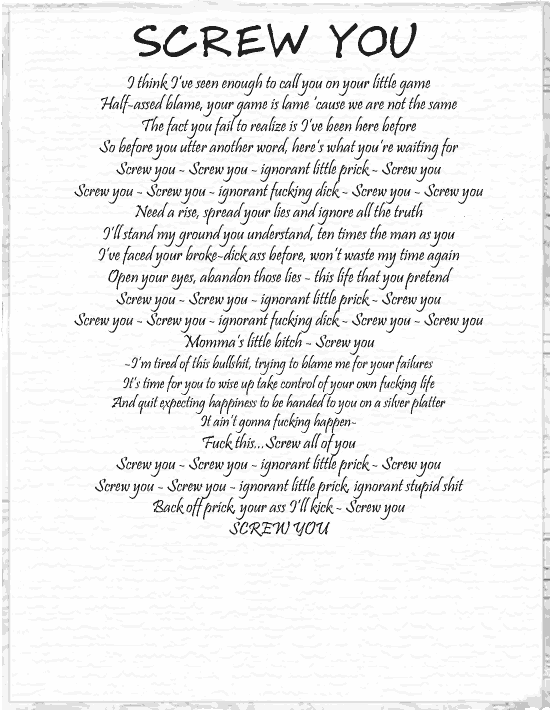 SCREW YOU
I think I've seen enough to call you on your little game
Half-assed blame, your game is lame 'cause we are not the same
The fact you fail to realize is I've been here before
So before you utter another word, here's what you're waiting for
Screw you ~ Screw you ~ ignorant little prick ~ Screw you
Screw you ~ Screw you ~ ignorant fucking dick ~ Screw you ~ Screw you
Need a rise, spread your lies and ignore all the truth
I'll stand my ground you understand, ten times the man as you
I've faced your broke-dick ass before, won't waste my time again
Open your eyes, abandon those lies ~ this life that you pretend
Screw you ~ Screw you ~ ignorant little prick ~ Screw you
Screw you ~ Screw you ~ ignorant fucking dick ~ Screw you ~ Screw you
Momma's little bitch ~ Screw you
~I'm tired of this bullshit, trying to blame me for your failures
It's time for you to wise up take control of your own fucking life
And quit expecting happiness to be handed to you on a silver platter
It ain't gonna fucking happen~
Fuck this...Screw all of you
Screw you ~ Screw you ~ ignorant little prick ~ Screw you
Screw you ~ Screw you ~ ignorant little prick, ignorant stupid shit
Back off prick, your ass I'll kick ~ Screw you
SCREW YOU